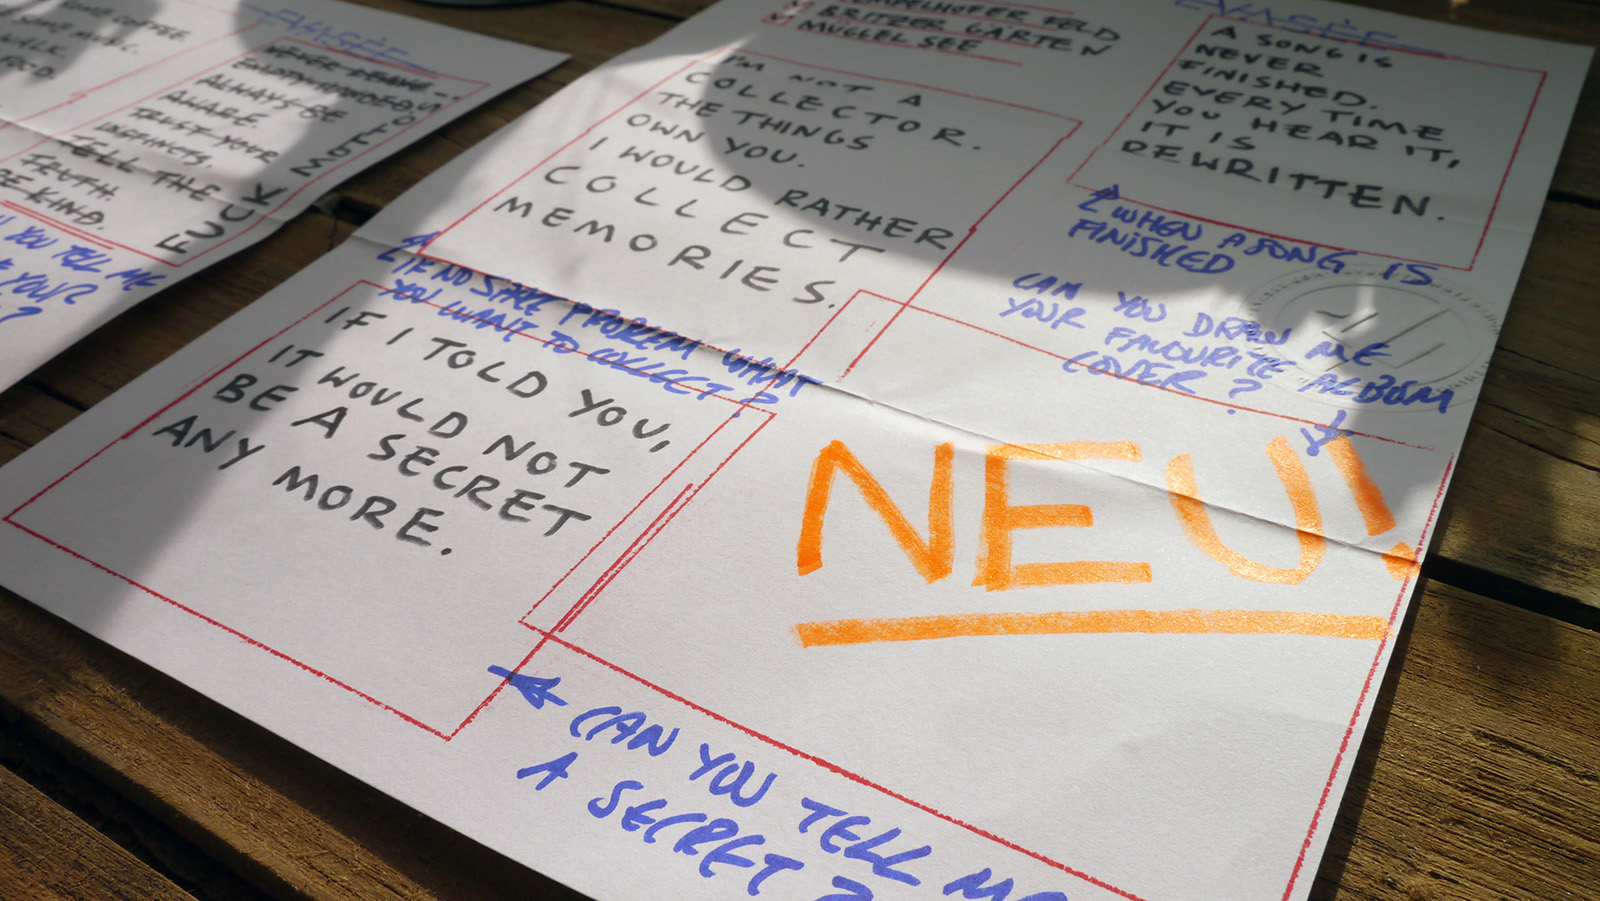 SOME MUSIC.
WALK.
FOOD.
ALWAYS BE
AWARE.
TRUST YOUR
INSTINCTS.
TELL THE
TRUTH.
BE KIND.
FUCK MOTTOS
YOU TELL ME
YOUR
?
TEMPELHOFER FELD
BRITZER GARTEN
MUGGEL SEE
I'M NOT A
COLLECTOR.
THE THINGS
OWN YOU.
I WOULD RATHER
COLLECT
MEMORIES.
PROBLEM WHAT
YOU WANT TO COLLECT?
A SONG IS
NEVER
FINISHED.
EVERY TIME
YOU HEAR IT,
IT IS
REWRITTEN.
WHEN A SONG IS
FINISHED
CAN YOU DRAW ME
YOUR FAVOURITE ALBUM
COVER?
IF I TOLD YOU,
IT WOULD NOT
BE A SECRET
ANY MORE.
NEU!
CAN YOU TELL ME
A SECRET?